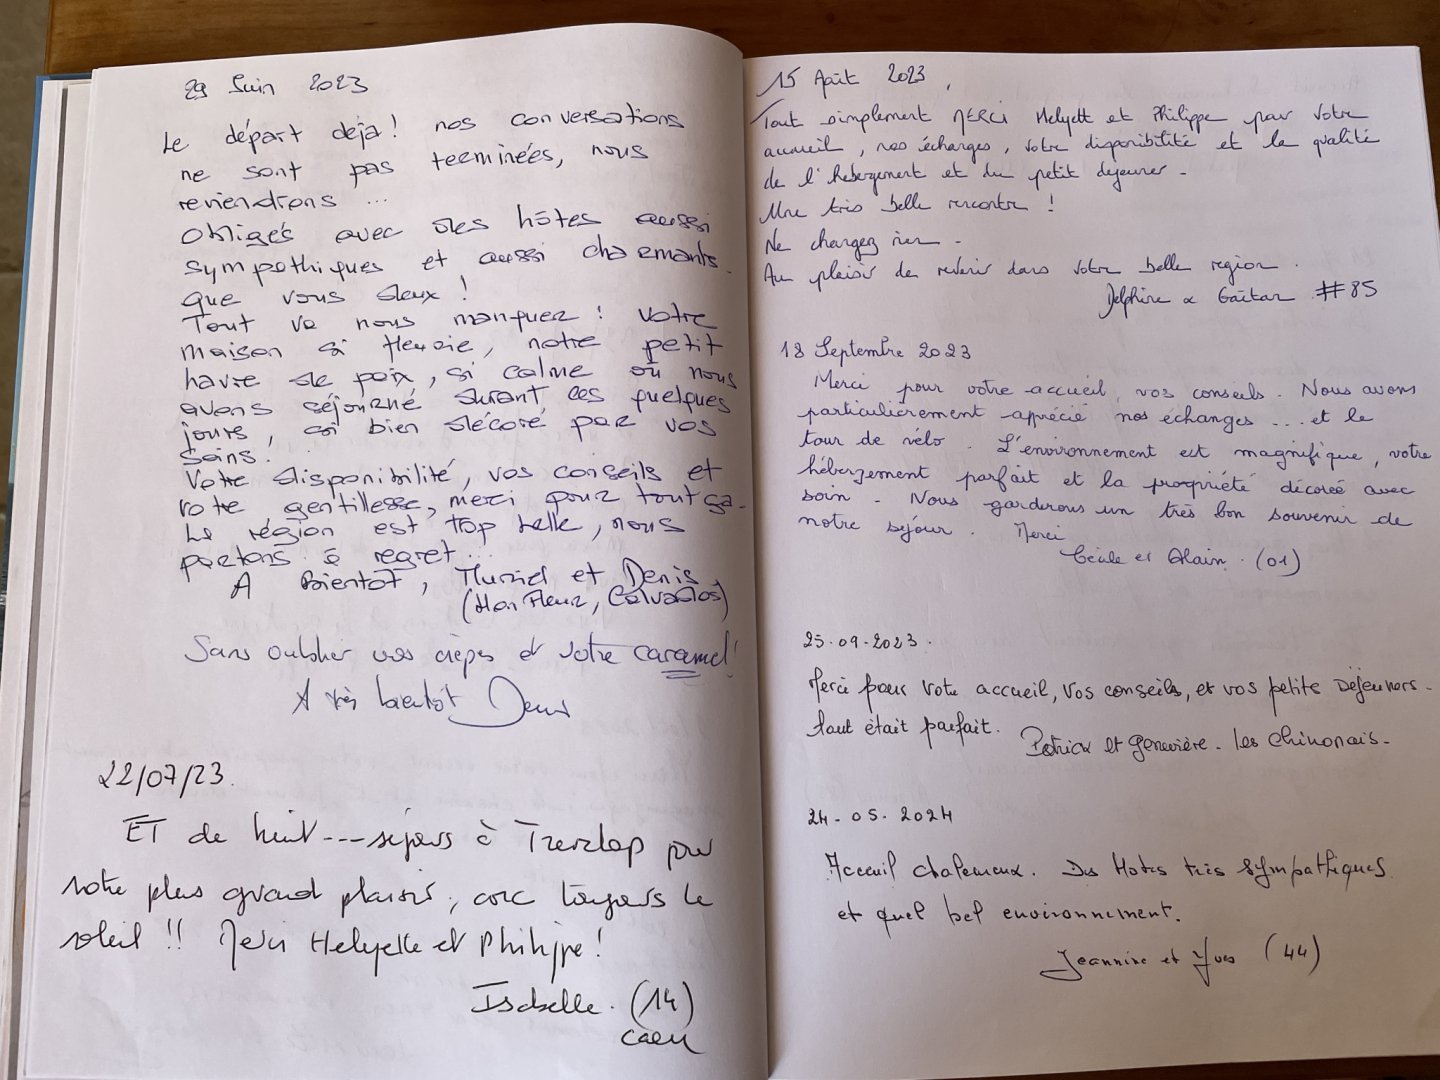 29 Juin 2023
Le départ déja! nos conversations
ne sont pas terminées, nous
reviendrons ...
Obligés avec des hôtes aussi
sympathiques et aussi charmants
que vous deux !
Tout va nous manquer ! votre
maison si fleurie, notre petit
havre de paix, si calme où nous
avons séjourné durant ces quelques
jours, si bien décoré par vos
soins.
Votre disponibilité, vos conseils et
votre gentillesse, merci pour tout ça.
La région est top belle, nous
partons à regret...
A Bientôt, Muriel et Denis
(Honfleur, Calvados)
Sans oublier vos crêpes et votre caramel!
A très bientôt Denis
22/07/23.
ET de huit --- séjours à Trerzlap pour
notre plus grand plaisir, avec toujours le
soleil !! Merci Helyette et Philippe !
Isabelle. (14)
Caen
15 Août 2023,
Tout simplement MERCI Helyett et Philippe pour votre
accueil, nos échanges, votre disponibilité et la qualité
de l'hébergement et du petit dejeuner -
Une très belle rencontre !
Ne changez rien -
Au plaisir de revenir dans votre belle region.
Delphine & Gaëtan #85
18 Septembre 2023
Merci pour votre accueil, vos conseils. Nous avons
particulièrement apprécié nos échanges ... et le
tour de vélo. L'environnement est magnifique, votre
hébergement parfait et la propriété décorée avec
soin - Nous garderons un très bon souvenir de
notre séjour. Merci
Cécile et Alain. (01)
25.09.2023.
Merci pour votre accueil, vos conseils, et vos petits Déjeuners.
tout était parfait.
Patrick et Geneviève. les chinonais.
24.05.2024
Acceuil chaleureux. Des Hotes très sympathiques
et quel bel environnement.
Jeannine et Yves (44)